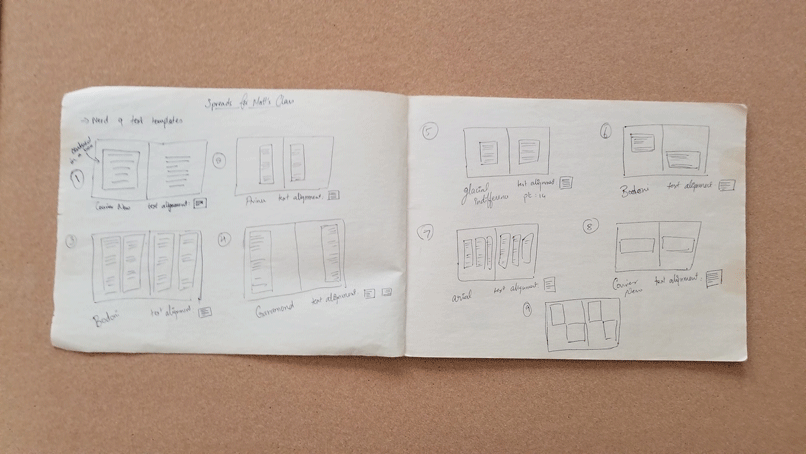 Spreads for Matt's Class
→ Need 9 text templates
centered in a box
①
Courier New text alignment:
②
text alignment:
③
Bodoni text alignment
④
Garamond text alignment:
⑤
glacial indifference text alignment:
pt. 14
⑥
Bodoni text alignment
⑦
arial text alignment:
⑧
Courier New text alignment:
⑨